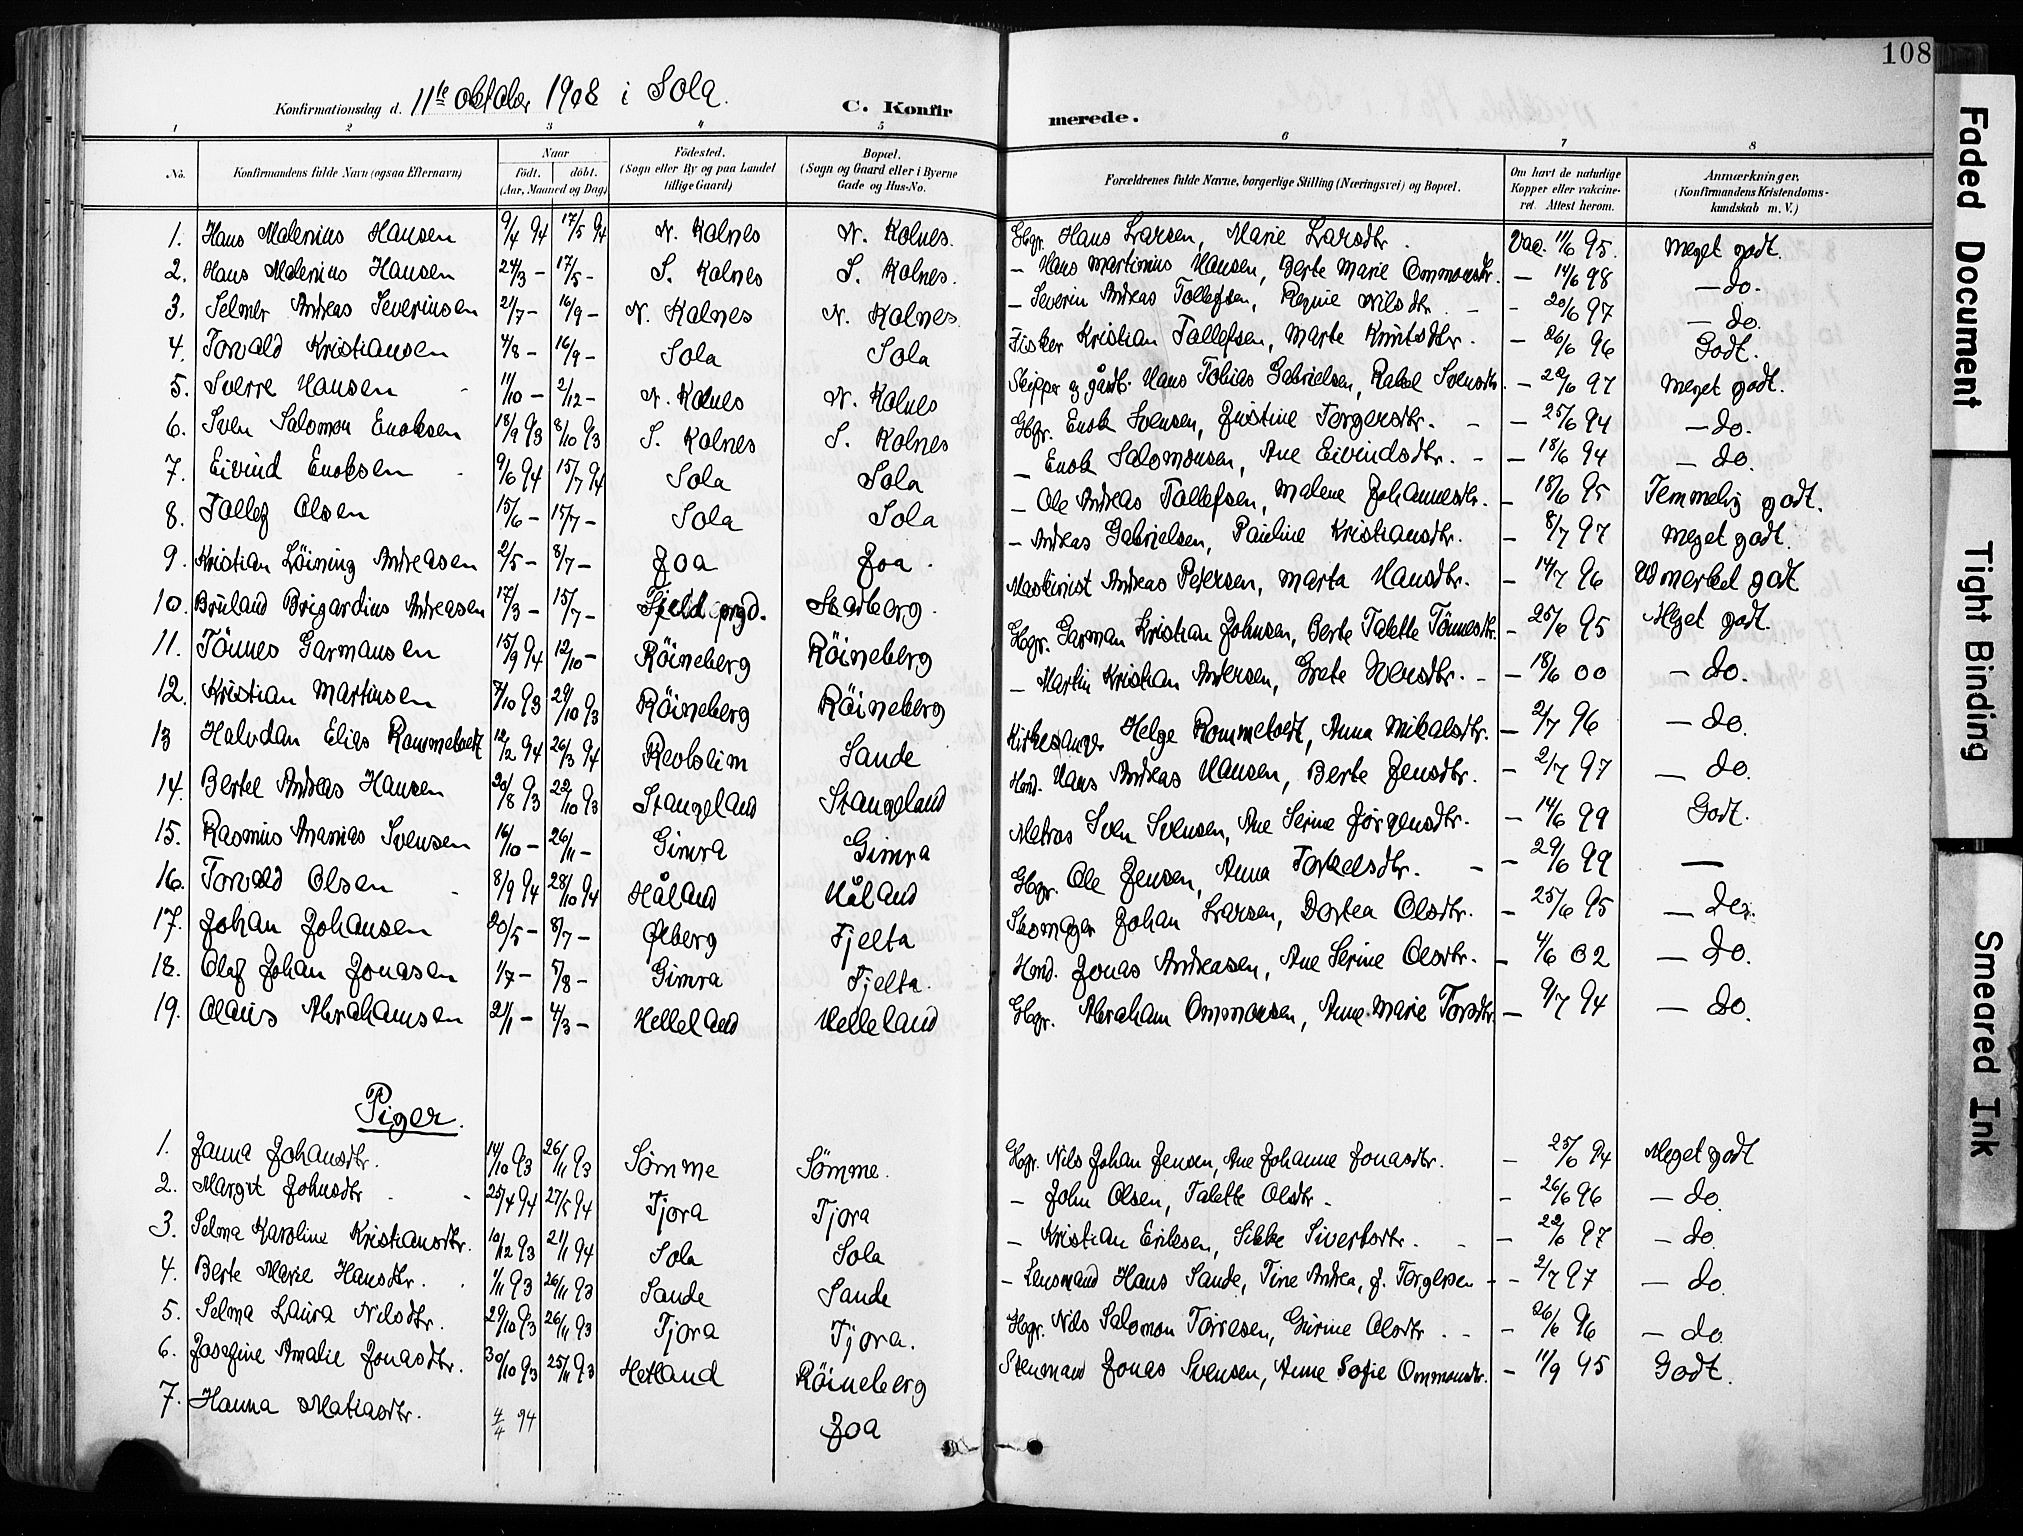 108
Konfirmationsdag d. 11te oktober 1908 i Sola.
C. Konfirmerede.
1 2 3 4 5 6 7 8
No. Konfirmandens fulde Navn (ogsaa Efternavn) Naar født. døbt. (Aar, Maaned og Dag) Fødested. (Sogn eller By og paa Landet tillige Gaard) Bopæl. (Sogn og Gaard eller i Byerne Gade og Hus-No. Forældrenes fulde Navne, borgerlige Stilling (Næringsvei) og Bopæl. Om havt de naturlige Kopper eller vakcineret. Attest herom. Anmærkninger. (Konfirmandens Kristendomskundskab m. V.)
1. Hans Malenius Hansen 9/4 94 17/5 94 N. Kolnes N. Kolnes. Gbgr. Hans Larsen, Marie Larsdtr. Vac. 11/6 95. Meget godt.
2. Hans Malenius Hansen 24/3 - 17/5 - S. Kolnes S. Kolnes. - Hans Martinius Hansen, Berte Marie Ommonsdtr. - 14/6 98 - do.
3. Selmer Andreas Severinsen 21/7 - 16/9 - N. Kolnes N. Kolnes. - Severin Andreas Tollefsen, Regine Nilsdtr. - 20/6 97 - do.
4. Torvald Kristiansen 4/8 - 16/9 - Sola Sola Fisker Kristian Tollefsen, Marte Knutsdtr. - 26/6 96 Godt.
5. Sverre Hansen 11/10 - 2/12 - N. Kolnes N. Kolnes Skipper og gårdb. Hans Tobias Gabrielsen, Rakel Svensdtr. - 20/6 97 Meget godt.
6. Sven Salomon Enoksen 18/9 93 8/10 93 S. Kolnes S. Kolnes Gbgr. Enok Svensen, Justine Torgersdtr. - 25/6 94 - do.
7. Eivind Enoksen 9/6 94 15/7 94 Sola Sola - Enok Salomonsen, Ane Eivindsdtr. - 18/6 94 - do.
8. Tollef Olsen 15/6 - 15/7 - Sola Sola - Ole Andreas Tollefsen, Malene Johannesdtr. - 18/6 95 Temmelig godt.
9. Kristian Löining Andreasen 2/5 - 8/7 - Joa Joa. - Andreas Gabrielsen, Pauline Kristiansdtr. - 8/7 97 Meget godt.
10. Bruland Brigardius Andreasen 17/3 - 15/7 - Fjeld prgd. Skadberg. Maskinist Andreas Petersen, Marta Hansdtr. - 14/7 96 Udmerket godt
11. Tönnes Garmansen 15/9 94 12/10 - Röineberg Röineberg Gbgr. Garman Kristian Johnsen, Berte Talette Tönnesdtr. - 25/6 95 Meget godt.
12. Kristian Martinsen 7/10 93 29/10 93 Röineberg Röineberg - Martin Kristian Andersen, Grete Iversdtr. - 18/6 00 - do.
13 Halvdan Elias Rommetvedt 12/2 94 26/3 94 Revheim Sande Kirkesanger Helge Rommetvedt, Anna Mikalsdtr. - 2/7 96 - do.
14. Bertel Andreas Hansen 20/8 93 22/10 93 Stangeland Stangeland Hmd. Hans Andreas Hansen, Berte Jensdtr. - 2/7 97 - do.
15. Rasmus Ananias Svensen 16/10 - 26/11 - Gimra Gimra Matros Sven Svensen, Ane Serine Jörgensdtr. - 14/6 99 Godt.
16. Torvald Olsen 8/9 94 28/10 94 Håland Håland Gbgr. Ole Jensen, Anna Torkelsdtr. - 29/6 99 -
17. Johan Johansen 20/5 - 8/7 - Øxberg Fjelta Skomager Johan Larsen, Dortea Olsdtr. - 25/6 95 - do.
18. Olaf Johan Jonasen 1/7 - 5/8 - Gimra Fjelta. Hmd. Jonas Andreasen, Ane Serine Olsdtr. - 4/6 02 - do.
19. Olaus Abrahamsen 21/1 - 4/3 - Helleland Helleland Gbgr. Abraham Ommonsen, Anne Marie Torsdtr. - 9/7 94 - do.
Piger.
1. Janna Johansdtr. 14/10 93 26/11 93 Sømme Sömme. Gbgr. Nils Johan Jensen, Ane Johanne Jonasdtr. - 25/6 94 Meget godt
2. Margit Johnsdtr 25/4 94 27/5 94 Tjora Tjora - John Olsen, Talette Olsdtr. - 26/6 96 - do.
3. Selma Karoline Kristiansdtr. 10/12 93 21/1 94 Sola Sola - Kristian Eriksen, Sikke Sivertsdtr. - 22/6 97 - do.
4. Berte Marie Hansdtr. 1/11 93 26/11 93 Sande Sande - Lensmand Hans Sande, Tine Andrea, f. Torgersen - 2/7 97 - do.
5. Selma Laura Nilsdtr. 29/10 93 26/11 93 Tjora Tjora. Gbgr. Nils Salomon Torresen, Gurine Olsdtr. - 26/6 96 - do
6. Josefine Amalie Jonasdtr. 30/10 93 25/11 93 Hetland Röineberg Stenmand Jonas Svensen, Anne Sofie Ommonsdtr. - 11/9 95 Godt.
7. Hanna Matiasdtr. 4/4 94 Joa
Faded Document
Tight Binding
Smeared Ink